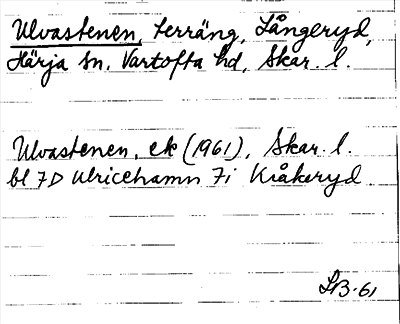 Ulvastenen, terräng, Långeryd,
Härja sn. Vartofta hd, Skar. l.
Ulvastenen, ek (1961), Skar. l.
bl 7D Ulricehamn 7i Kråkeryd
LB. 61